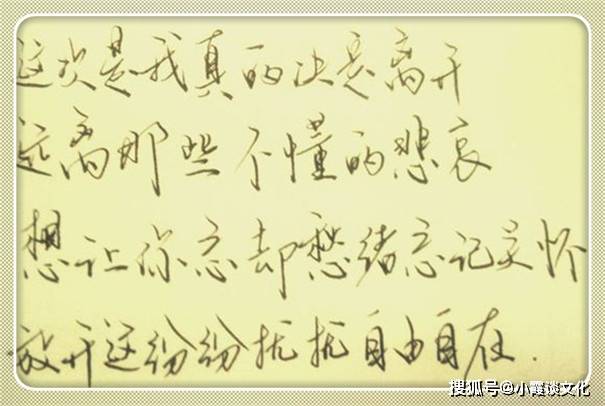 这次是我真的决意离开
远离那些不懂的悲哀
想让你忘却愁绪忘记关怀
放开这纷纷扰扰自由自在.
搜狐号@小霞谈文化